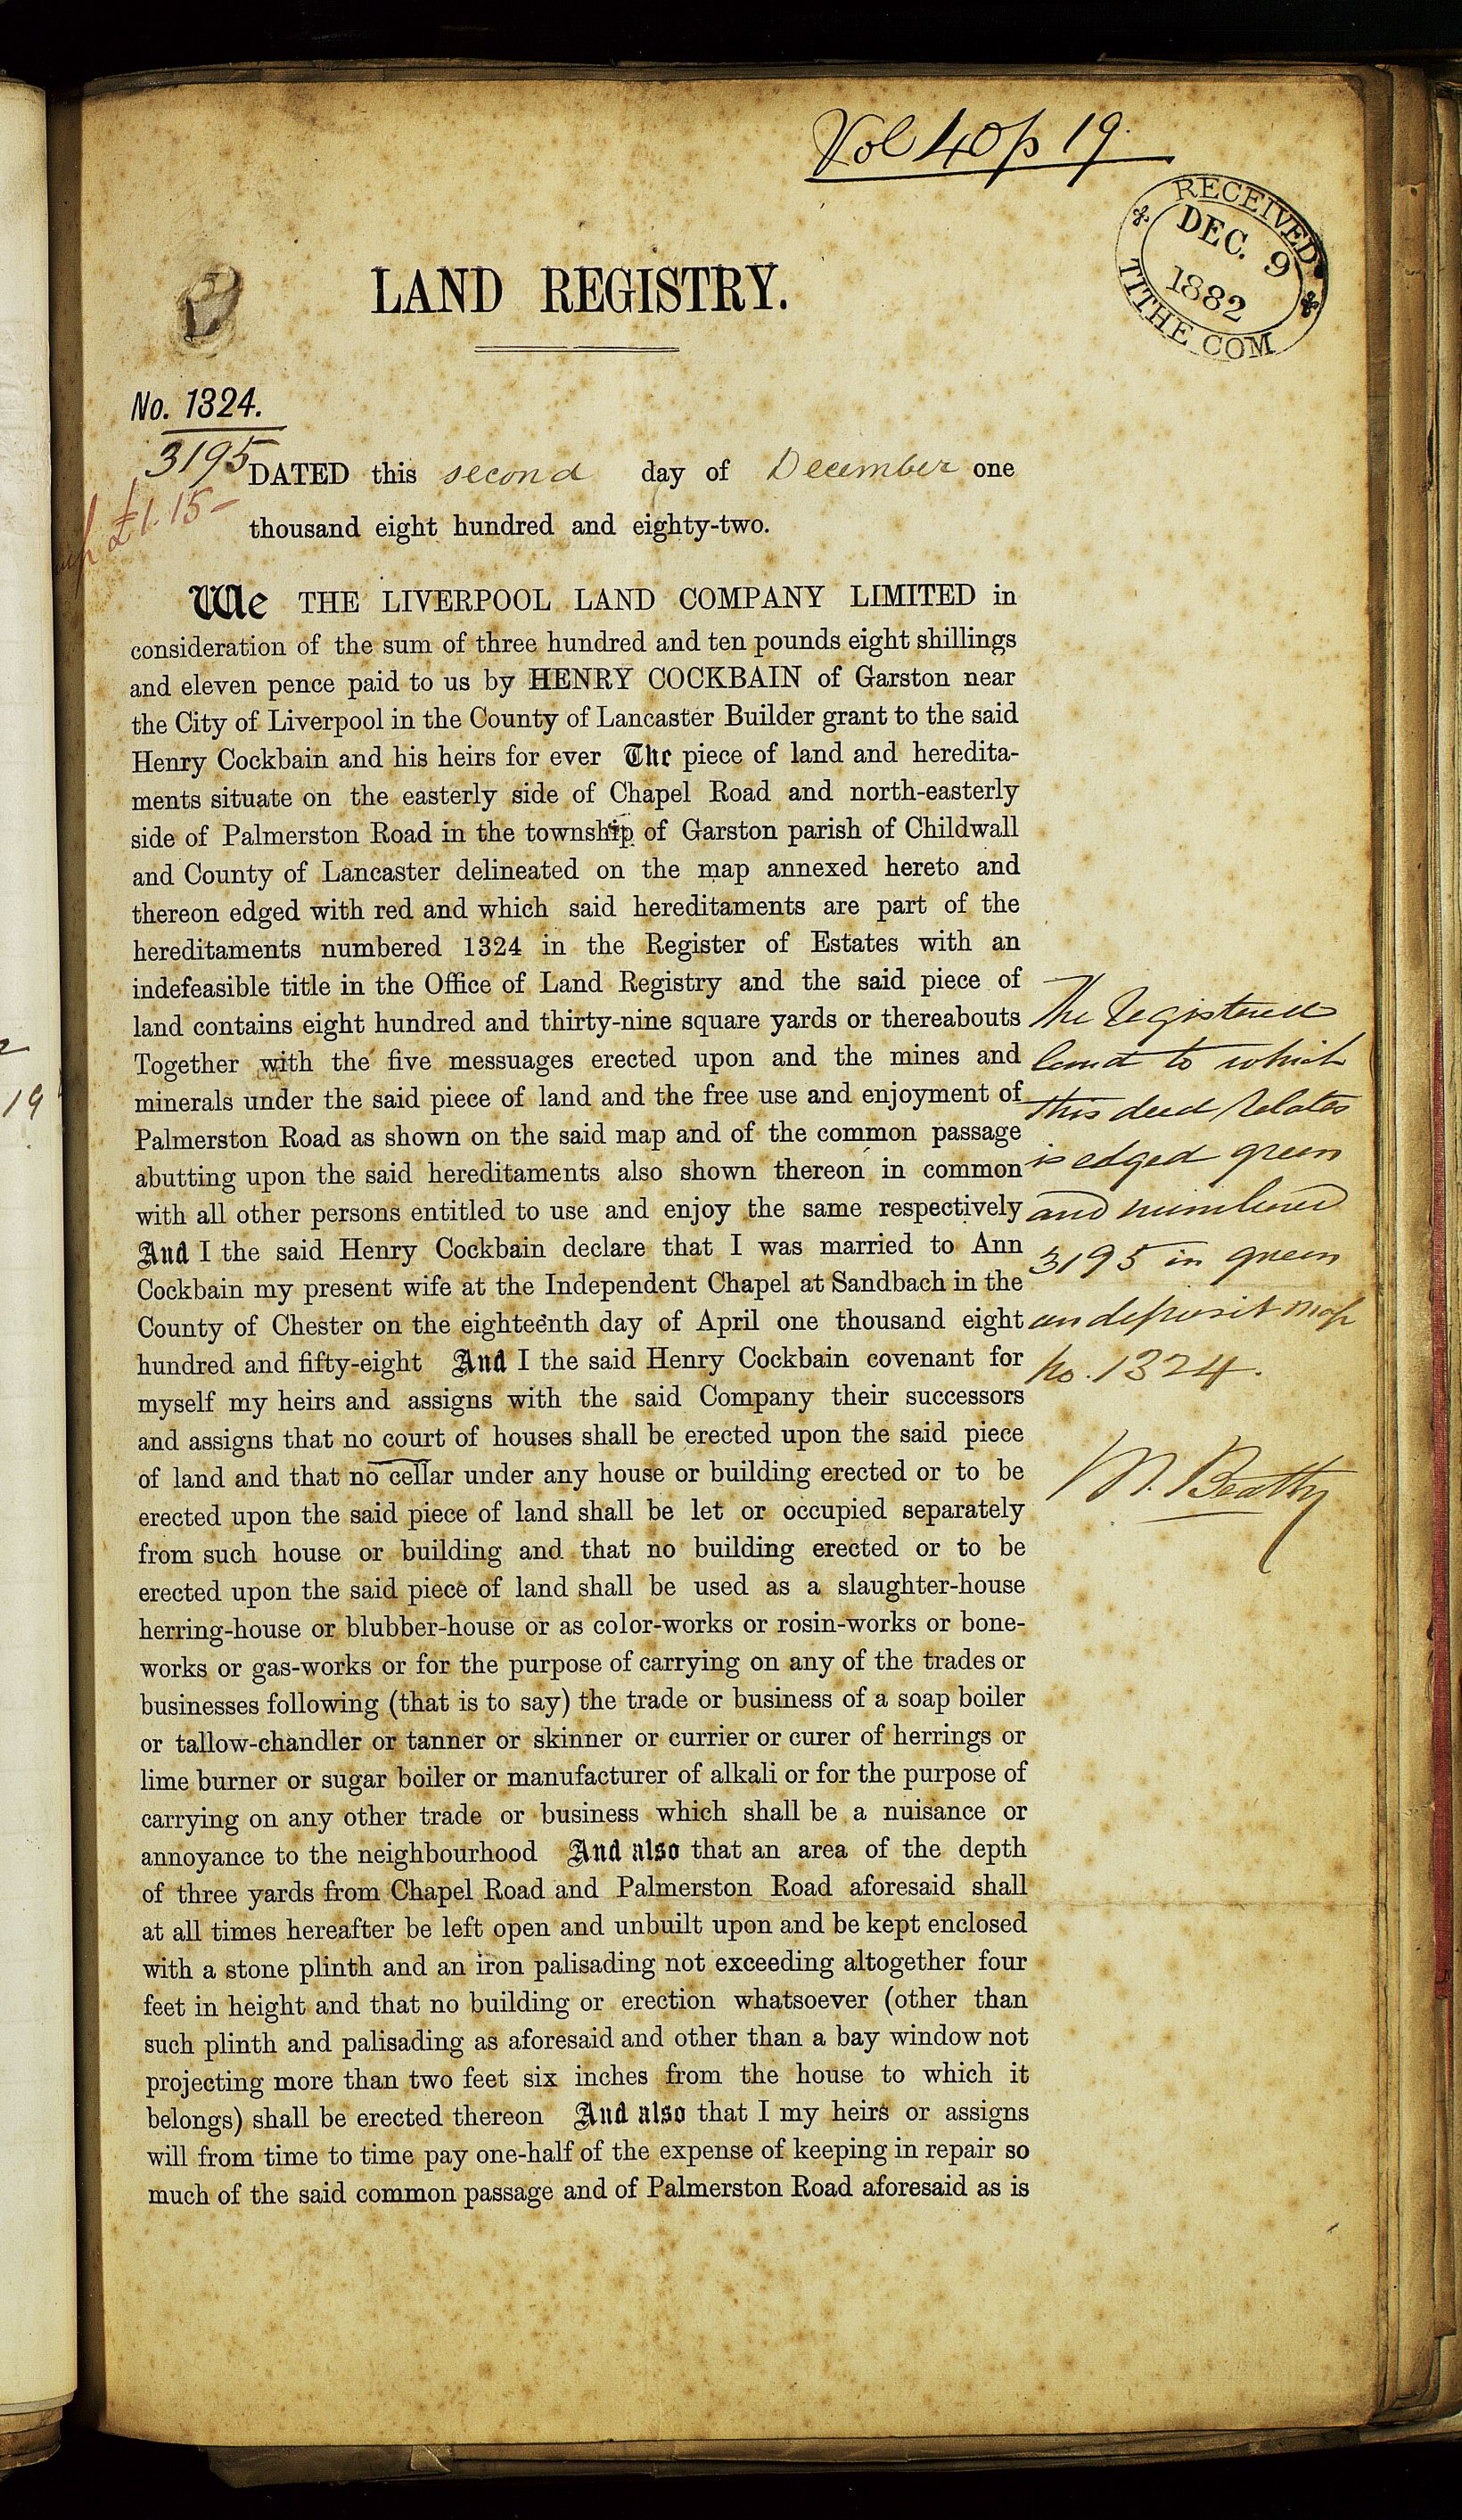 Vol 40 p 19.
RECEIVED
DEC. 9
1882
TITHE COM
LAND REGISTRY.
No. 1324.
3195
£1.15-
DATED this second day of December one
thousand eight hundred and eighty-two.
We THE LIVERPOOL LAND COMPANY LIMITED in
consideration of the sum of three hundred and ten pounds eight shillings
and eleven pence paid to us by HENRY COCKBAIN of Garston near
the City of Liverpool in the County of Lancaster Builder grant to the said
Henry Cockbain and his heirs for ever The piece of land and heredita-
ments situate on the easterly side of Chapel Road and north-easterly
side of Palmerston Road in the township of Garston parish of Childwall
and County of Lancaster delineated on the map annexed hereto and
thereon edged with red and which said hereditaments are part of the
hereditaments numbered 1324 in the Register of Estates with an
indefeasible title in the Office of Land Registry and the said piece of
land contains eight hundred and thirty-nine square yards or thereabouts
Together with the five messuages erected upon and the mines and
minerals under the said piece of land and the free use and enjoyment of
Palmerston Road as shown on the said map and of the common passage
abutting upon the said hereditaments also shown thereon in common
with all other persons entitled to use and enjoy the same respectively
And I the said Henry Cockbain declare that I was married to Ann
Cockbain my present wife at the Independent Chapel at Sandbach in the
County of Chester on the eighteenth day of April one thousand eight
hundred and fifty-eight And I the said Henry Cockbain covenant for
myself my heirs and assigns with the said Company their successors
and assigns that no court of houses shall be erected upon the said piece
of land and that no cellar under any house or building erected or to be
erected upon the said piece of land shall be let or occupied separately
from such house or building and that no building erected or to be
erected upon the said piece of land shall be used as a slaughter-house
herring-house or blubber-house or as color-works or rosin-works or bone-
works or gas-works or for the purpose of carrying on any of the trades or
businesses following (that is to say) the trade or business of a soap boiler
or tallow-chandler or tanner or skinner or currier or curer of herrings or
lime burner or sugar boiler or manufacturer of alkali or for the purpose of
carrying on any other trade or business which shall be a nuisance or
annoyance to the neighbourhood And also that an area of the depth
of three yards from Chapel Road and Palmerston Road aforesaid shall
at all times hereafter be left open and unbuilt upon and be kept enclosed
with a stone plinth and an iron palisading not exceeding altogether four
feet in height and that no building or erection whatsoever (other than
such plinth and palisading as aforesaid and other than a bay window not
projecting more than two feet six inches from the house to which it
belongs) shall be erected thereon And also that I my heirs or assigns
will from time to time pay one-half of the expense of keeping in repair so
much of the said common passage and of Palmerston Road aforesaid as is
The registered
land to which
this deed relates
is edged green
and numbered
3195 in green
on deposit map
No. 1324.
M. Beatty
19